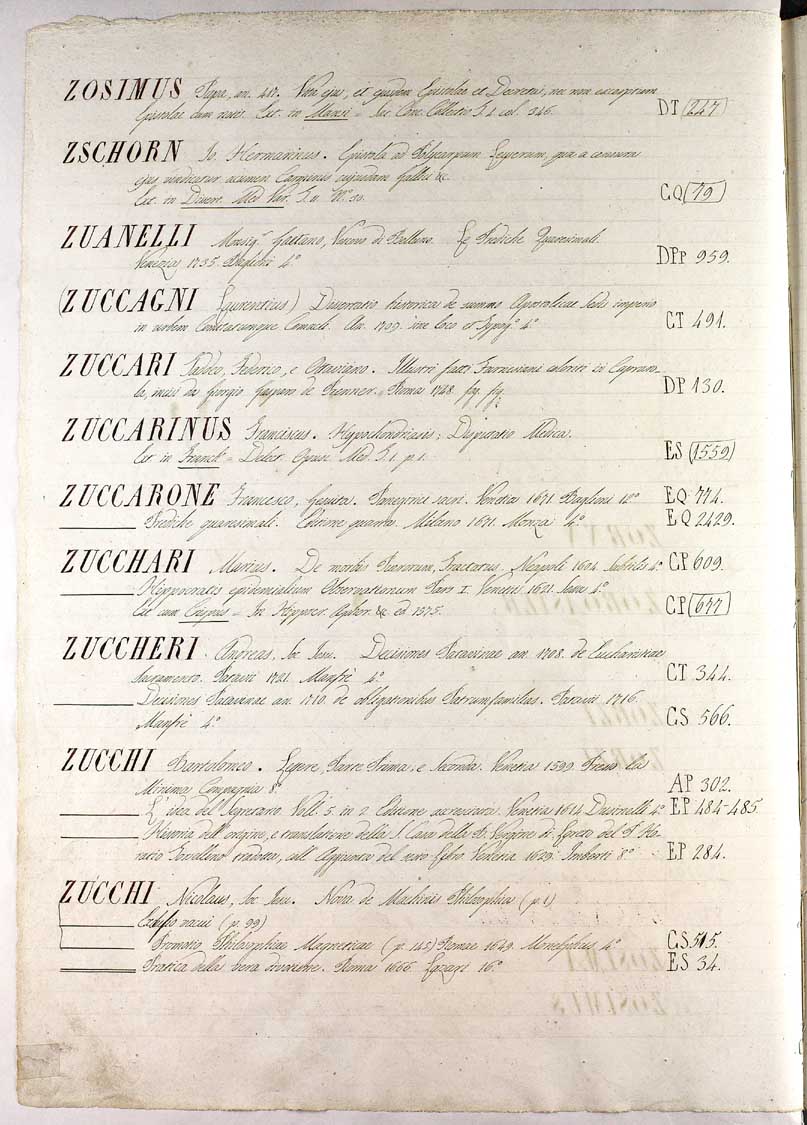 ZOSIMUS Papa, an. 417. Vita ejus, et ejusdem Epistolae et Decreta, nec non exemplum
Epistolae cum notis. Ext. in Mansi = Sac. Conc. Collectio T. 4 col. 346. DT (247)
ZSCHORN Jo. Hermannicus. Epistola ad Polycarpum Leyserum, qua a censura
ejus vindicatur acumen Carminis cujusdam Gallici &c.
Ext. in Divers. Med. Var. T. 11. N.° 20. CQ (19)
ZUANELLI Monsig.r Gaetano, Vescovo di Belluno. Le Prediche Quaresimali.
Venezia 1735. Baglioni 4.° DPp 959.
(ZUCCAGNI Laurentius) Dissertatio historica de summo Apostolicae Sedis imperio
in urbem Comitatumque Comacli. An. 1709. sine loco et Typog.° 4.° CT 491.
ZUCCARI Taddeo, Federico, e Ottaviano. Illustri fatti Farnesiani coloriti in Capraro-
la, incisi da Giorgio Gasparo de Prenner. Roma 1748. fog. fig. DP 130.
ZUCCARINUS Franciscus. Hypochondriasis, Disputatio Medica.
Ext. in Franck = Delect. Opusc. Med. T. 1. p. 1. ES (1559)
ZUCCARONE Francesco, Gesuita. Panegirici sacri. Venetia 1671. Baglioni 12.° EQ 774.
Prediche quaresimali. Edizione quarta. Milano 1671. Monza 4.° EQ 2429.
ZUCCHARI Marius. De morbis Puerorum, Tractatus. Neapoli 1604. Subtilis 4.° CP 609.
Hippocratis epidemialium Observationum Pars I. Venetiis 1621. 4.°
Ext. cum = In Hippocr. Aphor. &c. ed. 1575. CP (677)
ZUCCHERI Andreas, Soc. Jesu. Decisiones Patavinae an. 1708. de Eucharistiae
Sacramento. Patavii 1721. Manfrè 4.° CT 344.
Decisiones Patavinae an. 1710. de obligationibus Patrumfamilias. Patavii 1716.
Manfrè 4.° CS 566.
ZUCCHI Bartolomeo. Lettere, Parte Prima, e Seconda. Venetia 1599. Presso la
Minima Compagnia 8.° AP 302.
L'idea del Segretario. Voll. 5. in 2. Edizione accresciuta. Venetia 1614. Dusinelli 4.° EP 484-485.
Historia dell'origine, e translatione della S. Casa della B. Vergine di Loreto del S. Ho-
ratio Torsellino tradotta, coll'Aggiunta del novo Libro. Venetia 1629. Imberti 8.° EP 284.
ZUCCHI Nicolaus, Soc. Jesu. Nova de Machinis Philosophia (p. 1)
Exclusio vacui (p. 99)
Promotio Philosophiae Magneticae (p. 145) Romae 1649. Manelphius 4.° CS 515.
Pratica della vera divozione. Roma 1666. Lazari 16.° ES 34.